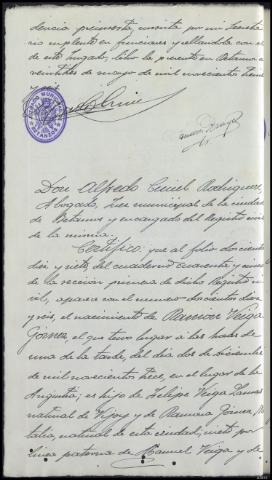 dencia propuesta, escrita por mi Secreta
rio suplente en funciones y sellandola con el
de este Juzgado, libro la presente en Betanzos a
veintidos de mayo de mil novecientos trein
BETANZOS
Don Alfredo Ciriel Rodriguez,
Abogado, Juez municipal de la ciudad
de Betanzos y encargado del Registro civil
de la misma.
Certifico: que al folio doscientos
diez y siete, del cuaderno cuarenta y cinco
de la seccion primera de dicho Registro ci-
vil, aparece con el numero doscientos diez
y seis, el nacimiento de Veiga
Gómez, el que tuvo lugar a las horas de
una de la tarde, del dia dos de diciembre
de mil novecientos trece, en el lugar de la
Angustia; es hijo de Felipe Veiga Lamas
natural de Vijoy y de Ramona Gómez, Na
talia, natural de esta ciudad, nieto por
linea paterna de Manuel Veiga y de